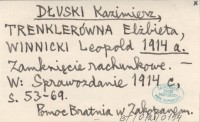 DŁUSKI Kazimierz,
TRENKLERÓWNA Elżbieta,
WINNICKI Leopold 1914 a.
Zamknięcie rachunkowe. —
W: Sprawozdanie 1914 c,
s. 53-69.
Pomoc Bratnia w Zakopanem.